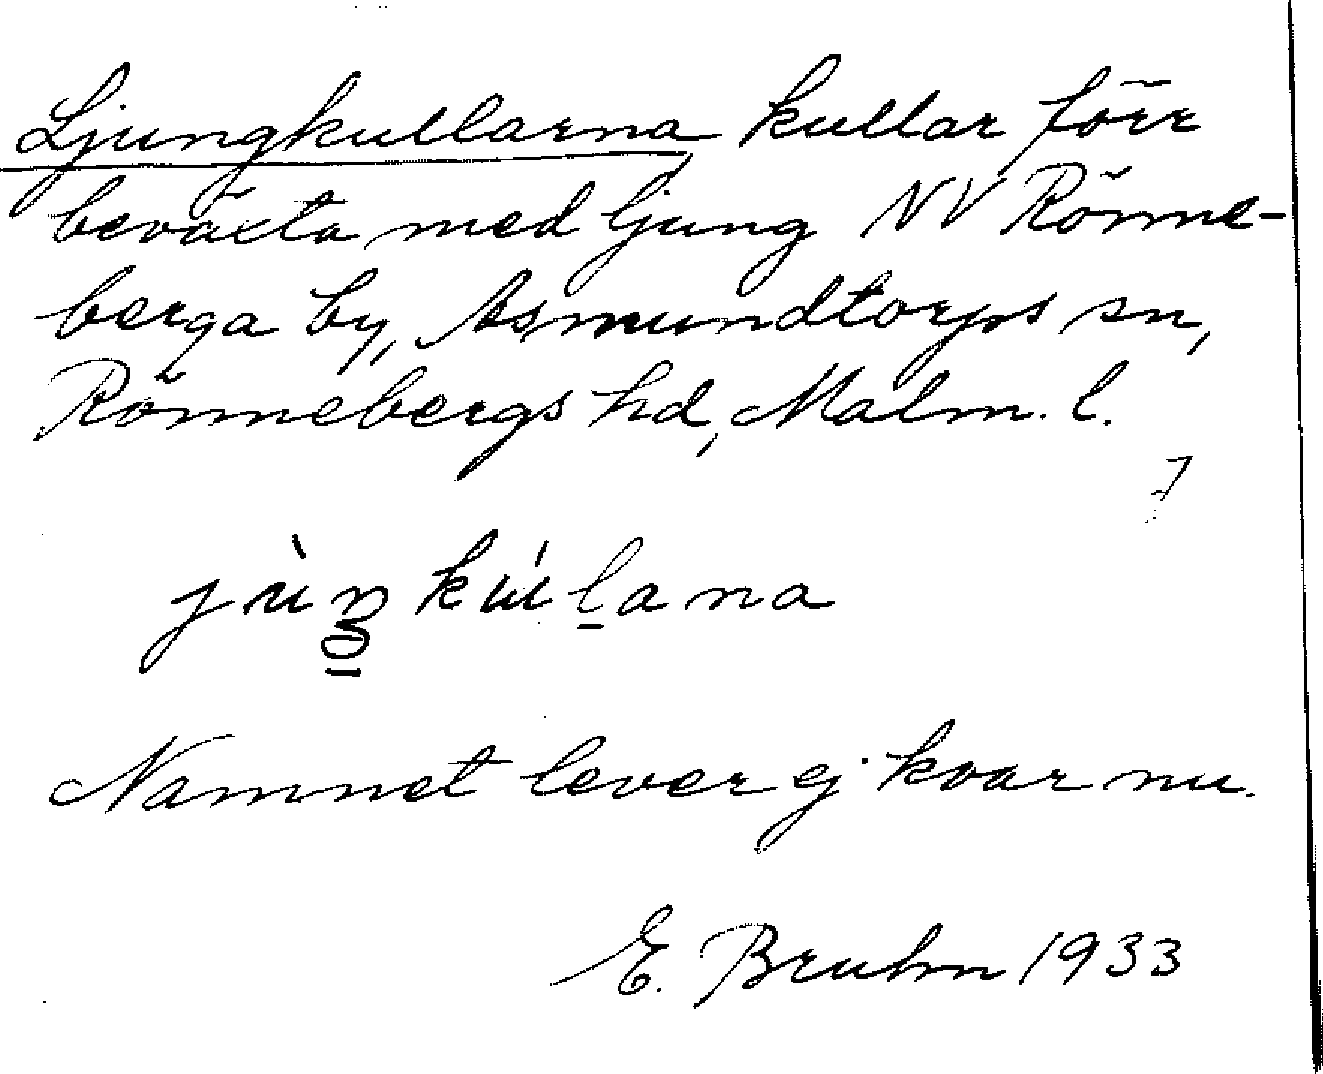 Ljungkullarna kullar förr
beväxta med ljung NV Rönne-
berga by, Asmundtorps sn,
Rönnebergs hd, Malm. l.
Namnet lever ej kvar nu.
E. Bruhn 1933